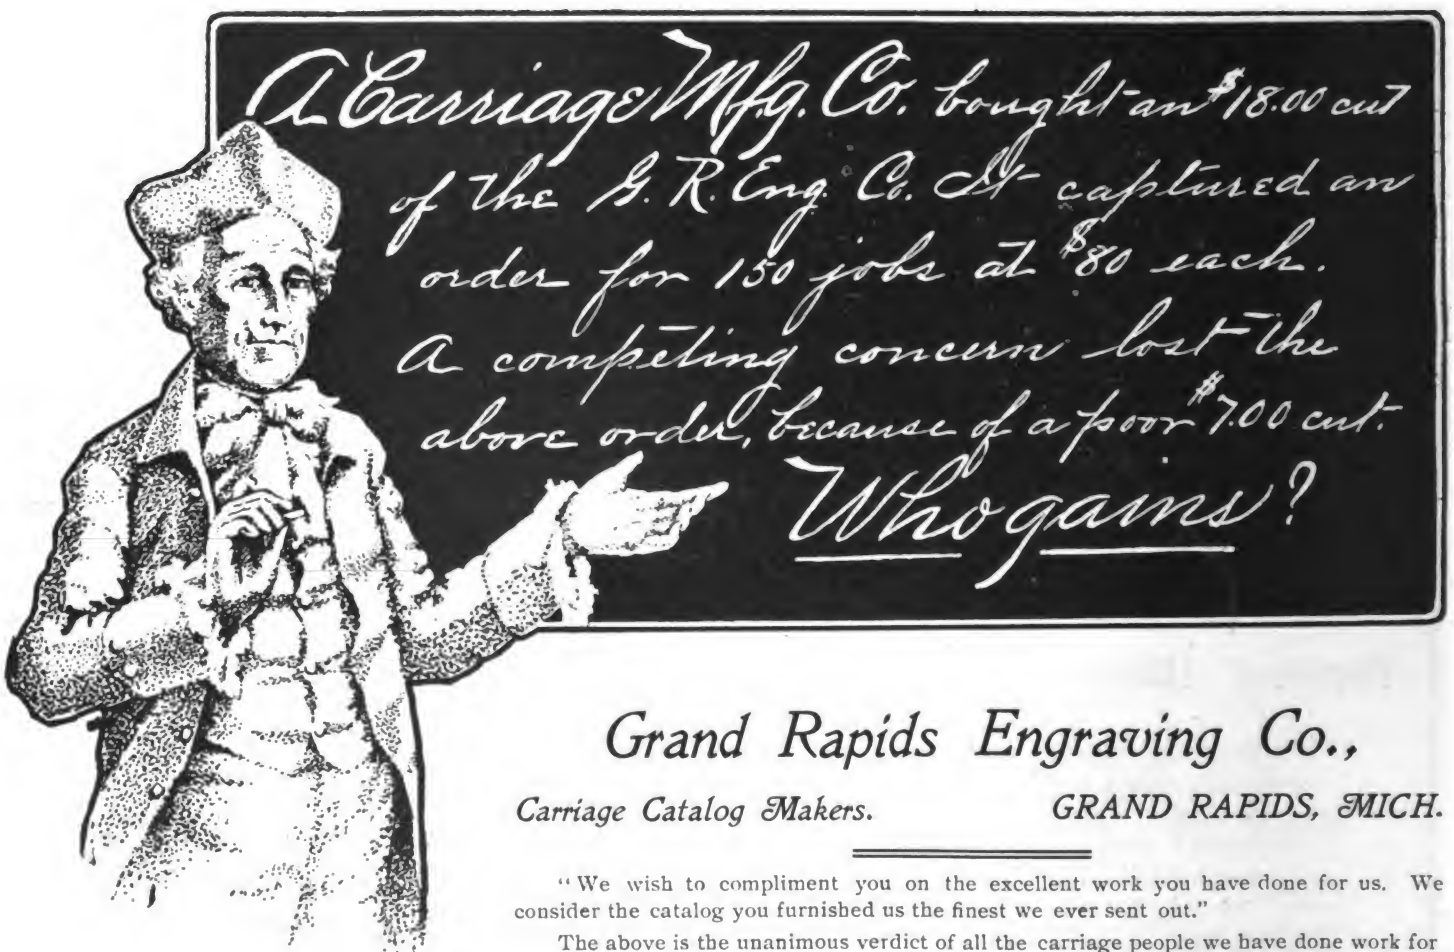 A Carriage Mfg. Co. bought an $18.00 cut
of the G. R. Eng. Co. It captured an
order for 150 jobs at $80 each.
A competing concern lost the
above order, because of a poor $7.00 cut.
Who gains?
Grand Rapids Engraving Co.,
Carriage Catalog Makers. GRAND RAPIDS, MICH.
"We wish to compliment you on the excellent work you have done for us. We
consider the catalog you furnished us the finest we ever sent out."
The above is the unanimous verdict of all the carriage people we have done work for